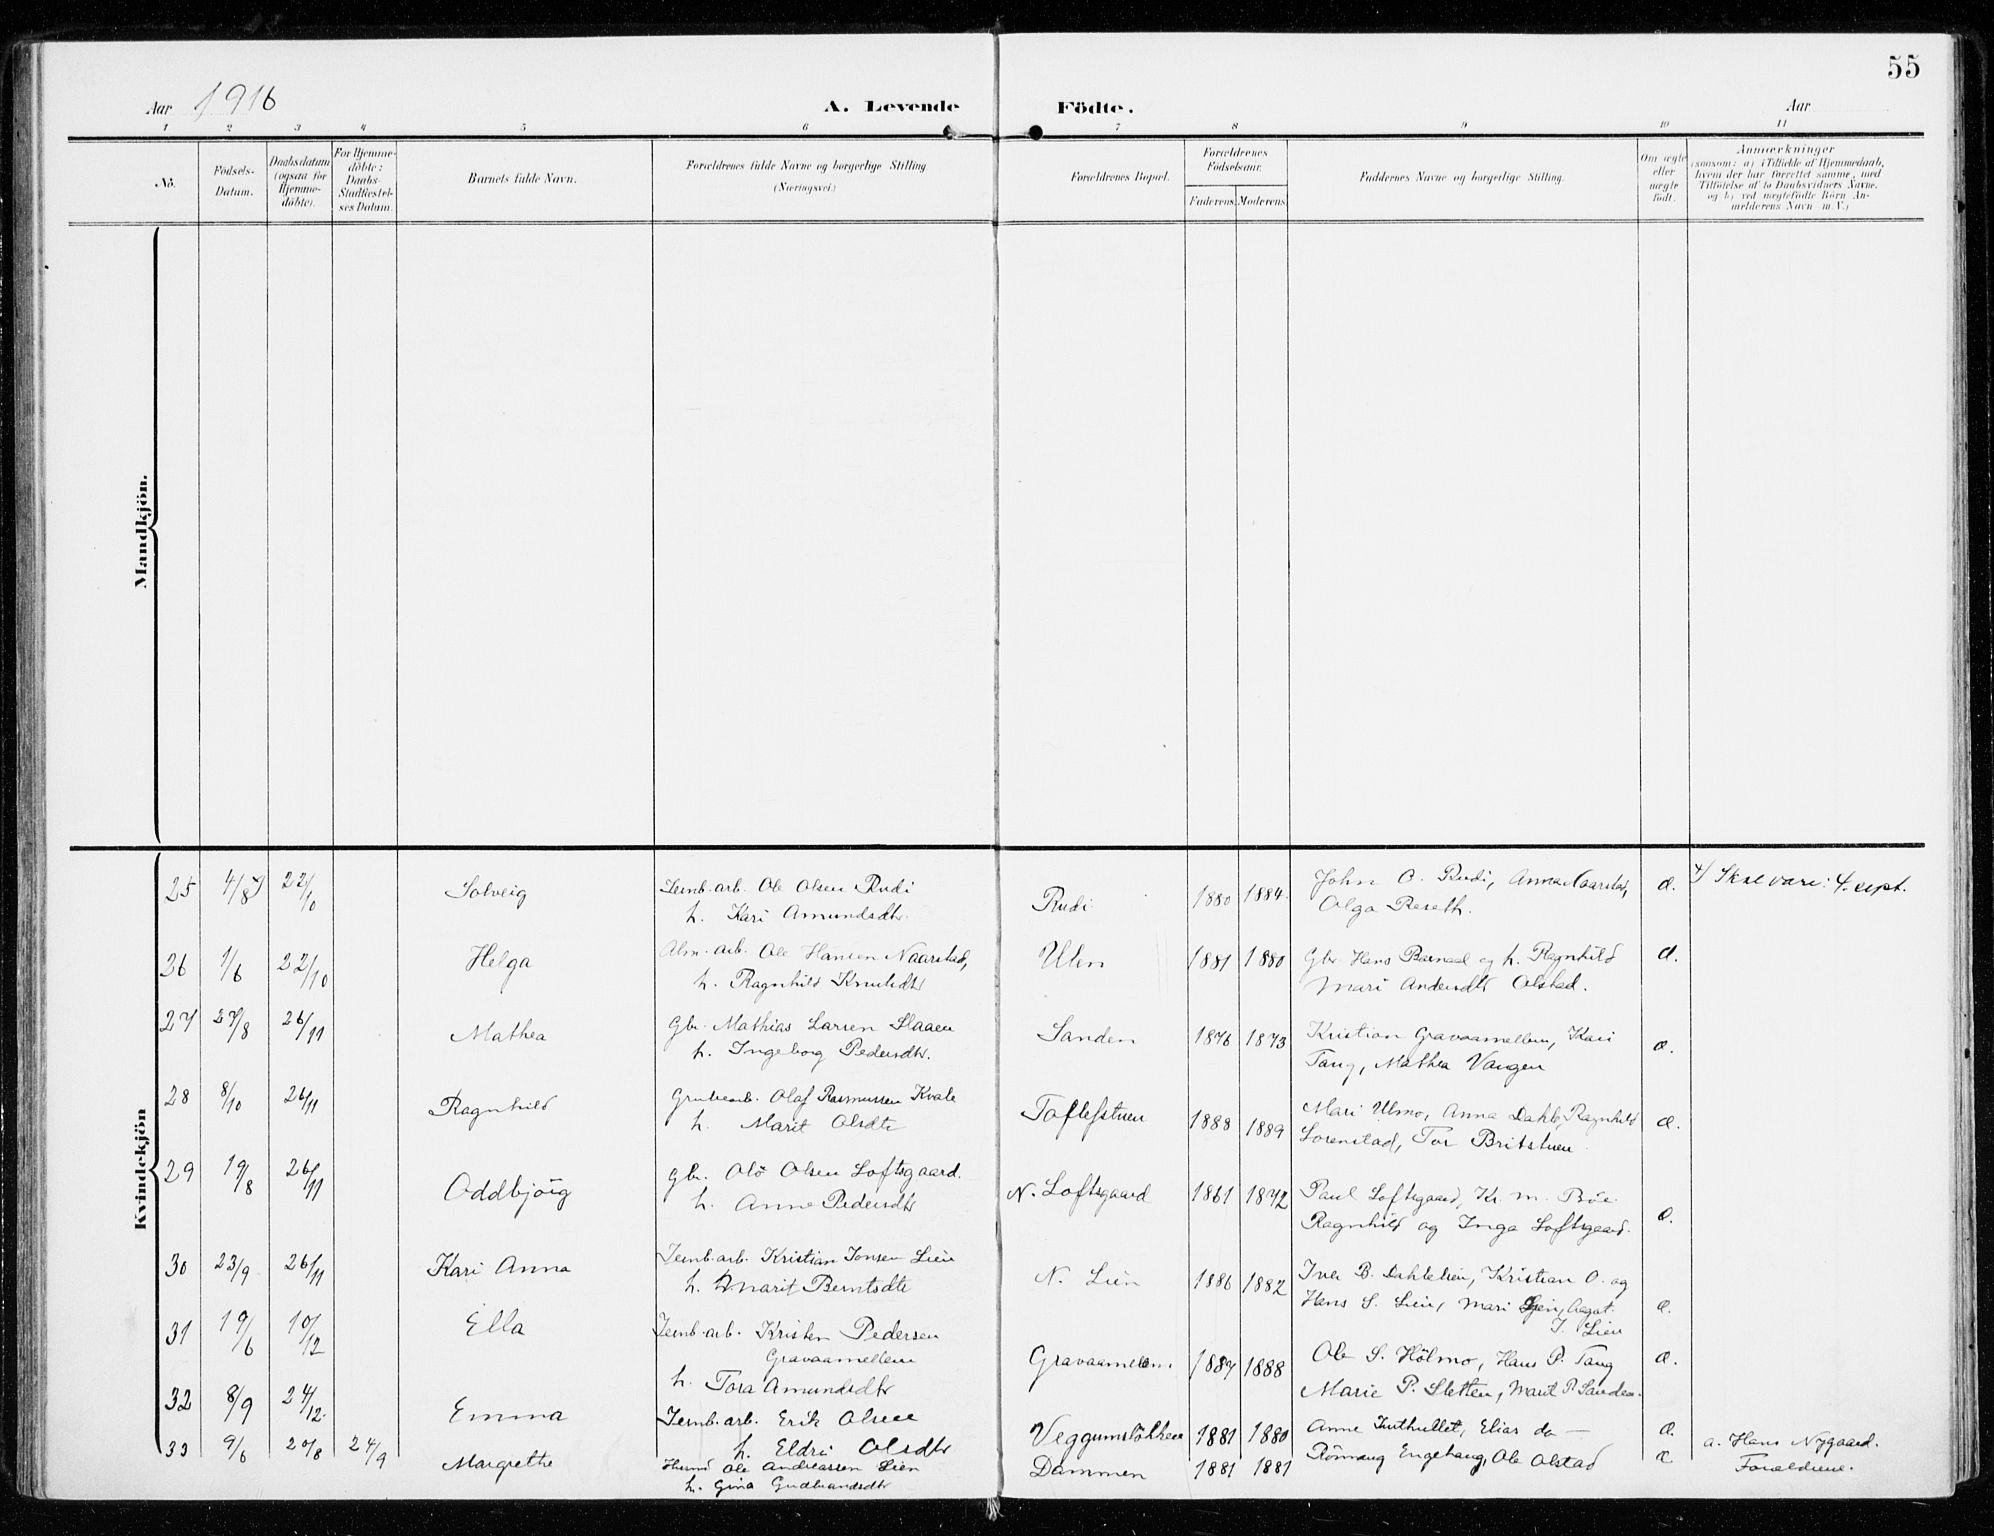 55
Aar 1916
A. Levende Födte.
Aar
1 2 3 4 5 6 7 8 9 10 11
No.
Födsels-Datum.
Daabsdatum (ogsaa for Hjemme-döbte).
For Hjemme-döbte: Daabs-Stadfæstel-ses Datum.
Barnets fulde Navn.
Forældrenes fulde Navne og borgerlige Stilling
(Næringsvei.)
Forældrenes Bopæl.
Forældrenes Födselsaar.
Faderens. Moderens.
Faddernes Navne og borgerlige Stilling.
Om ægte eller uægte födt.
Anmærkninger
(saasom: a) i Tilfælde af Hjemmedaab,
hvem der har forrettet samme, med
Tilföielse af to Daabsvidners Navne,
og b) ved uægtefödte Börn An-
melderens Navn m. V.)
Mandkjön.
Kvindekjön
25 4/8 22/10 Solveig Jernb.arb. Ole Olsen Rudi Rudi 1880 1884 John O. Rudi, Anna Naarstad, æ. Skal være: 4. sept.
h. Kari Amundsdtr. Olga Reseth.
26 1/6 22/10 Helga Alm. arb. Ole Hansen Naarstad, Ulen 1881 1880 Gbr Hans Barnaal og h. Ragnhild æ.
h. Ragnhild Knutsdtr Mari Andersdtr Olstad.
27 27/8 26/11 Mathea Gbr. Mathias Larsen Slaaen Sanden 1876 1873 Kristian Gravaamellem, Kari æ.
h. Ingeborg Pedersdtr. Tang, Mathea Vangen
28 8/10 26/11 Ragnhild Grubearb. Olaf Rasmussen Kvale Toftestuen 1888 1889 Mari Ulmo, Anna Dahle, Ragnhild æ.
h. Marit Olsdtr Lorenstad, Tor Britstuen
29 19/8 26/11 Oddbjörg Gbr. Ole Olsen Loftsgaard. N. Loftsgaard 1861 1872 Paul Loftsgaard, Kr. M. Böe æ.
h. Anne Pedersdtr Ragnhild og Inga Loftsgaard.
30 23/9 26/11 Kari Anna Jernb.arb. Kristian Jonsen Lien N. Lien 1886 1882 Iver B. Dahlelien, Kristian O. og æ.
h. Marit Berntsdtr Hans S. Lien, Mari Lien, Aagot
J. Lien
31 19/6 10/12 Ella Jernb.arb. Kristen Pedersen Gravaamellem 1887 1888 Ole S. Hölmo, Hans P. Tang æ.
Gravaamellem
h. Tora Amundsdtr Marie P. Sletten, Marit P. Sanden.
32 8/9 24/12 Emma Jernb.arb. Erik Olsen Veggumslökken 1881 1880 Anne , Elias do — æ.
h. Eldri Olsdtr
33 9/6 20/8 24/9 Margrethe Husmd Ole Andreassen Lien Dammen 1881 1881 Rönnaug Engehaug, Ole Olstad æ a. Hans Nygaard.
h. Gina Gudbrandsdtr Forældrene.